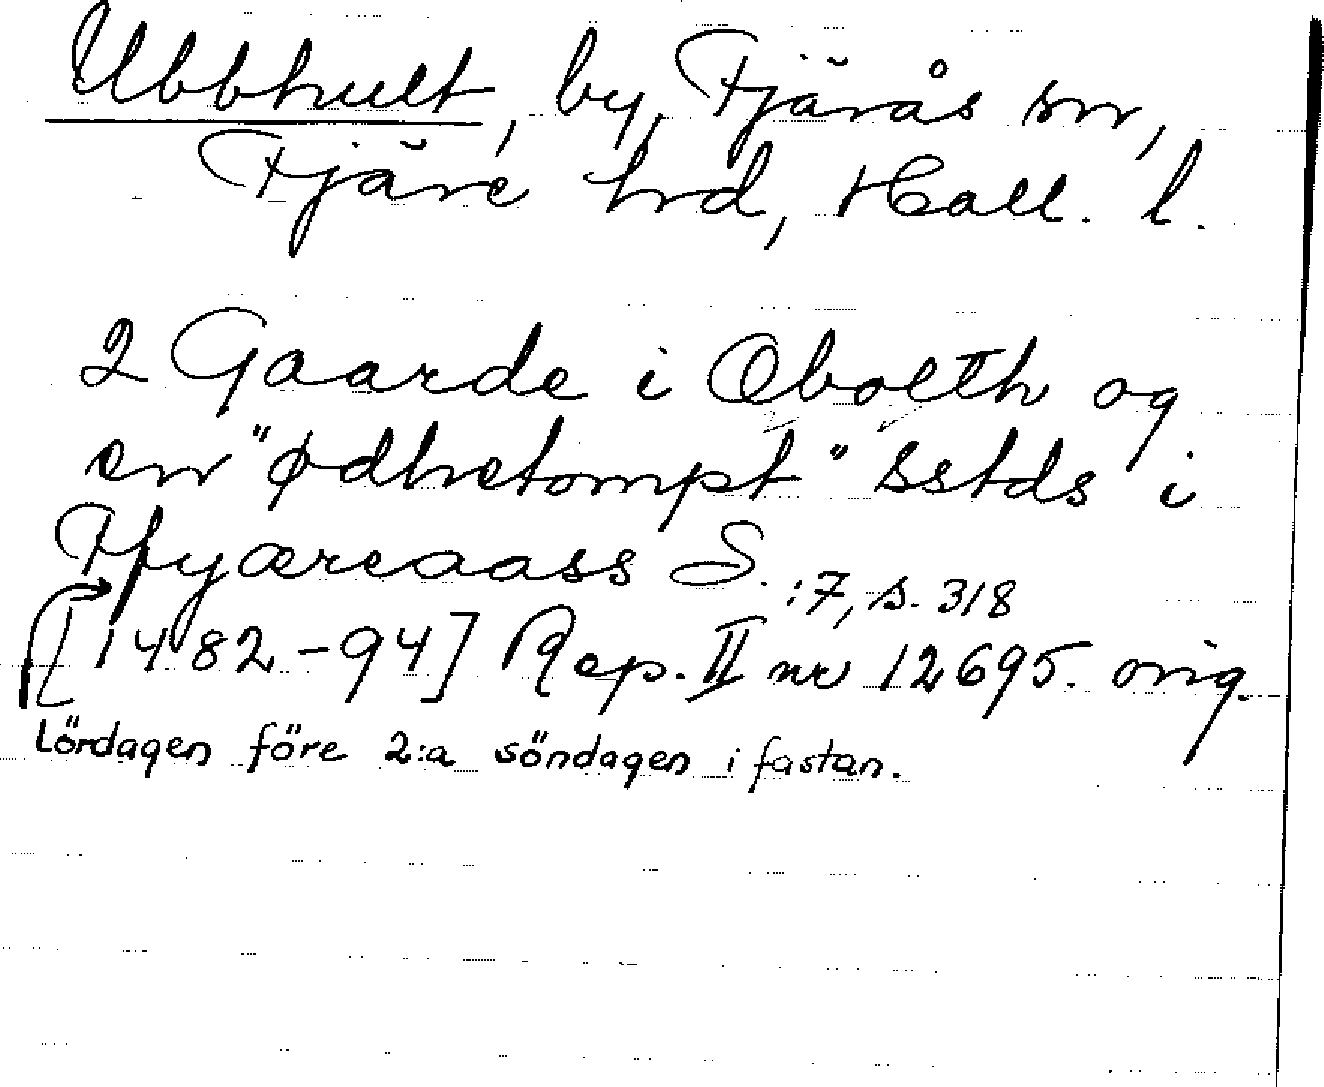 Ubbhult, by, Fjärås sn,
Fjäre hrd, Hall. l.
2 Gaarde i Obolth og
en "ødhetompt" sstds i
Ffyæreaass S. :7, s. 318
[1482-94] Rep. II nr 12695. orig.
Lördagen före 2:a söndagen i fastan.